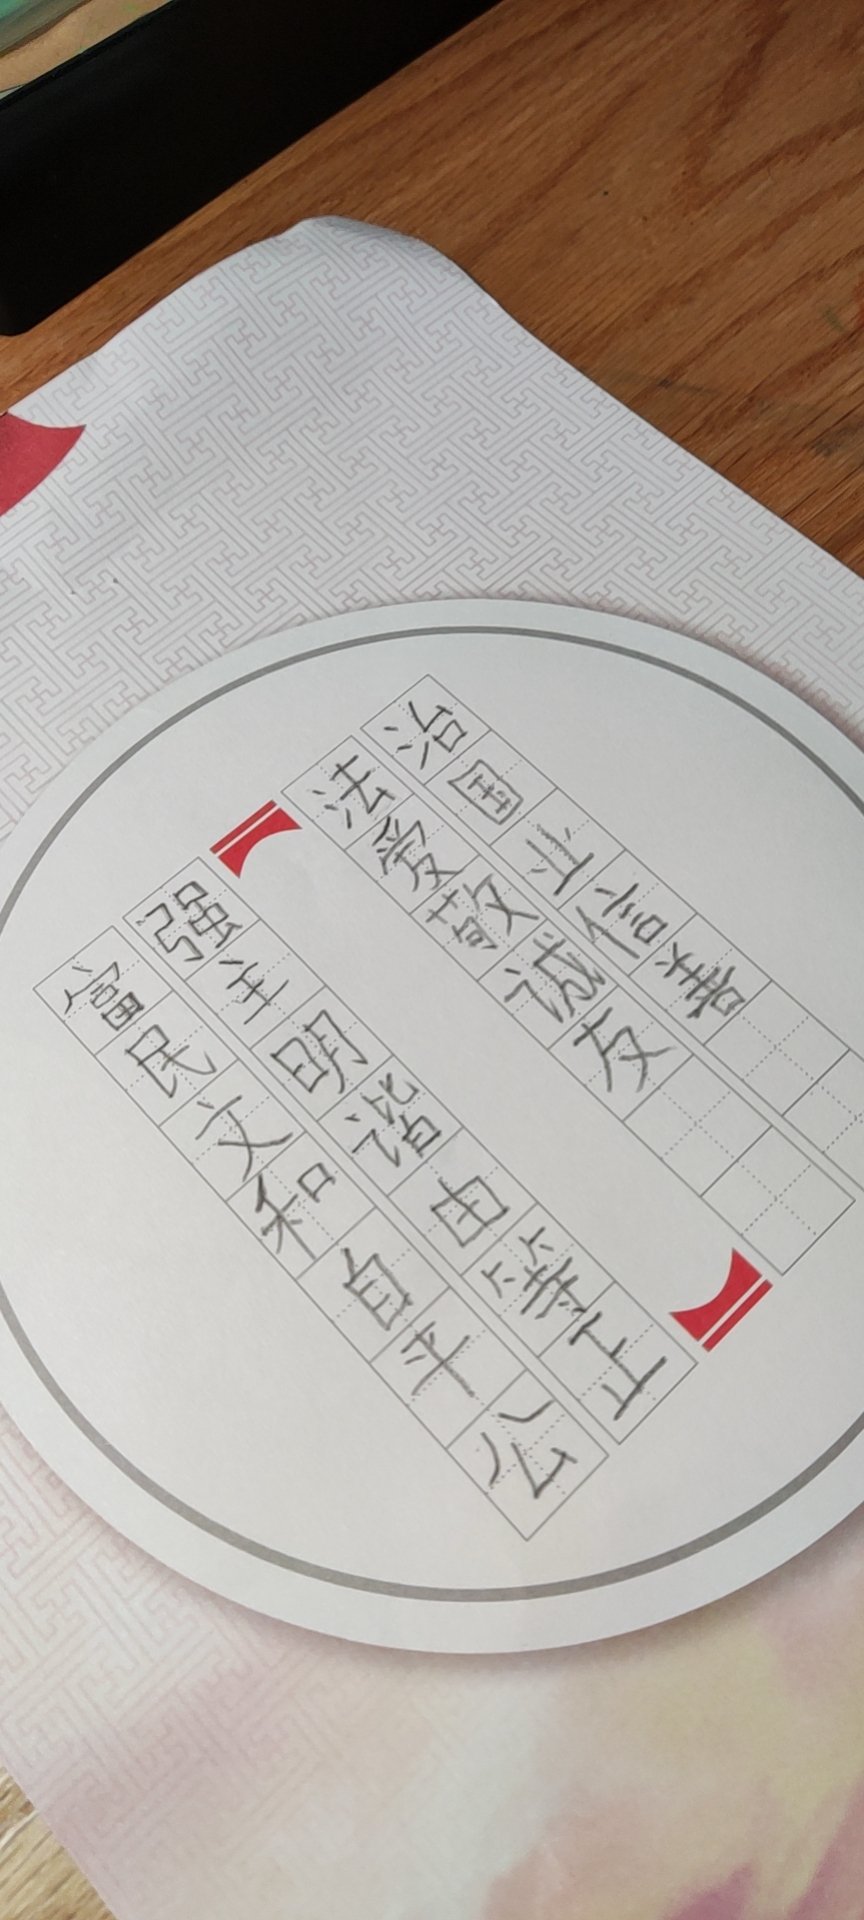 富强
民主
文明
和谐
自由
平等
公正
法治
爱国
敬业
诚信
友善